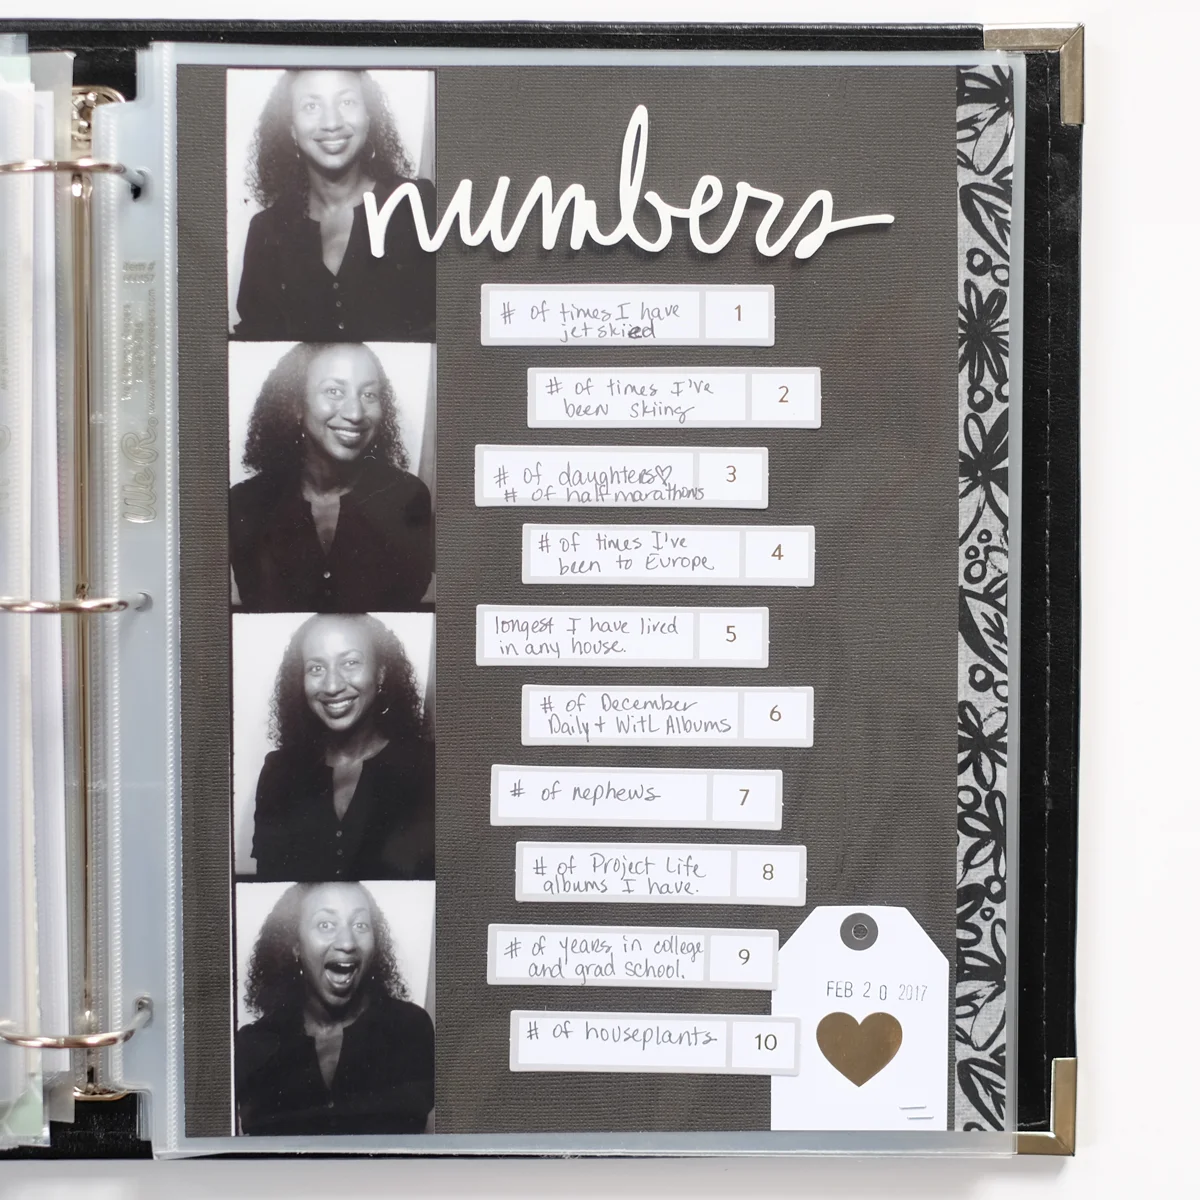 numbers
# of times I have
jet skied
1
# of times I've
been skiing
2
# of daughters♡
# of half marathons
3
# of times I've
been to Europe
4
longest I have lived
in any house.
5
# of December
Daily + WITL Albums
6
# of nephews
7
# of Project Life
albums I have.
8
# of years in college
and grad school.
9
# of houseplants
10
FEB 20 2017
We R